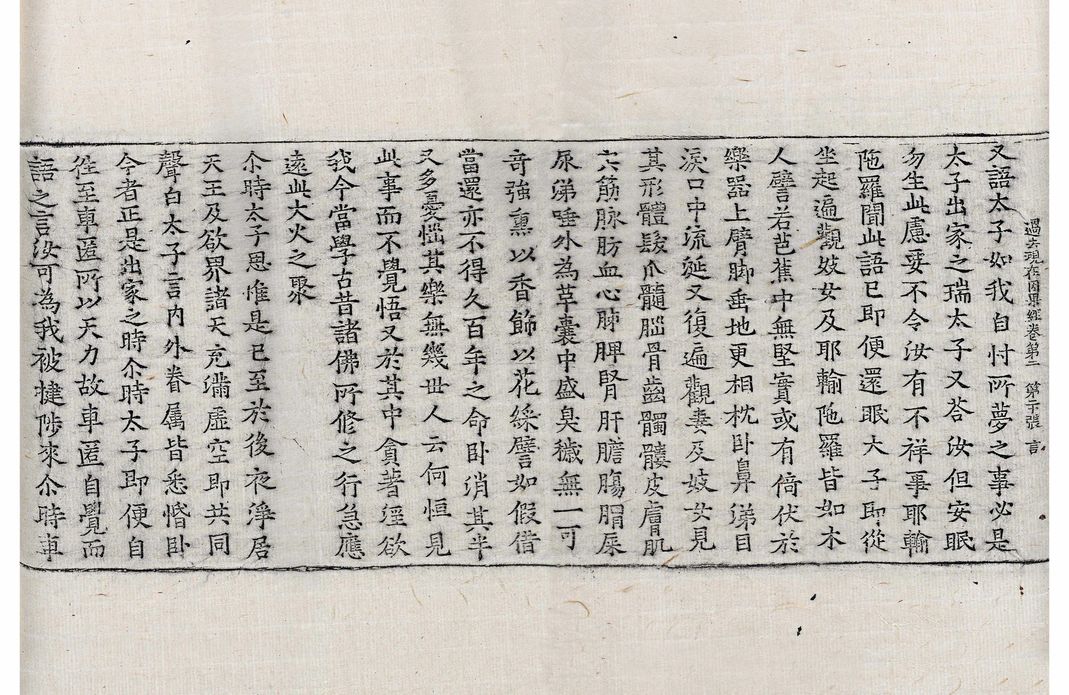 過去現在因果経巻第二 第二十張 言
又語太子如我自忖所夢之事必是
太子出家之瑞太子又荅汝但安眠
勿生此慮要不令汝有不祥事耶輸
陁羅聞此語已即便還眠太子即從
坐起遍觀妓女及耶輸陁羅皆如木
人譬若芭蕉中無堅實或有倚伏於
樂器上臂脚垂地更相枕卧鼻涕目
淚口中流涎又復遍觀妻及妓女見
其形體髮爪髓腦骨齒髑髏皮膚肌
宍筋脉肪血心肺脾腎肝膽腸胃屎
尿涕唾外為革囊中盛臭穢無一可
奇強熏以香飾以花綵譬如假借
當還亦不得久百年之命卧消其半
又多憂惱其樂無幾世人云何恒見
此事而不覺悟又於其中貪著婬欲
我今當學古昔諸佛所修之行急應
遠此大火之聚
尒時太子思惟是已至於後夜淨居
天王及欲界諸天充滿虛空即共同
聲白太子言內外眷属皆悉惛卧
今者正是出家之時尒時太子即便自
往至車匿所以天力故車匿自覺而
語之言汝可為我被揵陟來尒時車